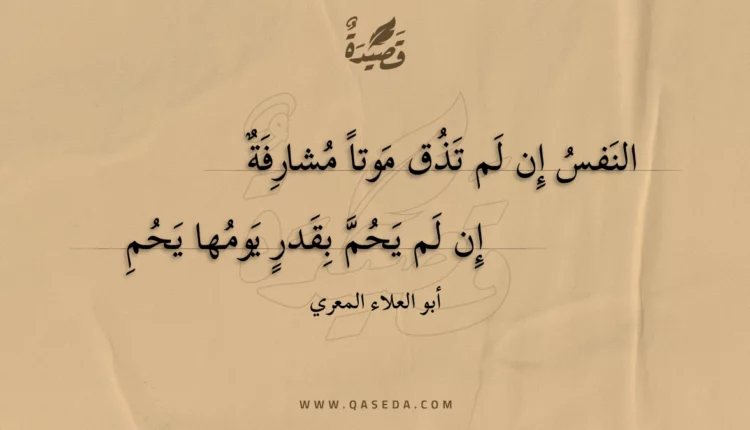 قَصِيدَةٌ
النَفسُ إِن لَم تَذُق مَوتاً مُشارِفَةٌ
إِن لَم يَحُمَّ بِقَدرٍ يَومُها يَحُمِ
أبو العلاء المعري
WWW.QASEDA.COM